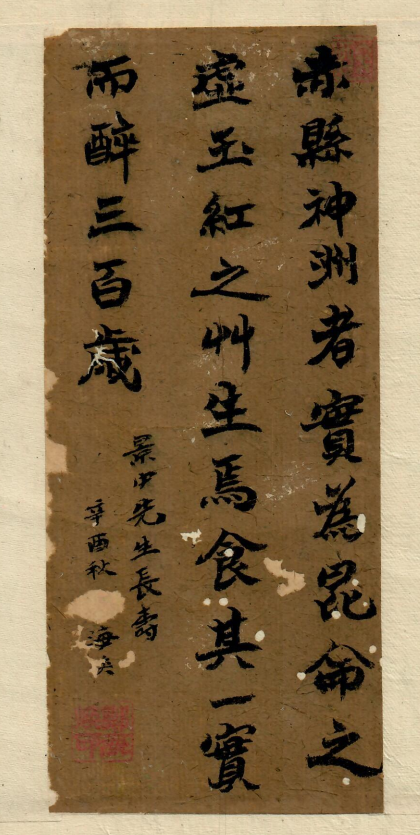 赤縣神洲者實為昆侖之
虛玉紅之艸生焉食其一實
而醉三百歲
景先生長壽
辛酉秋 海